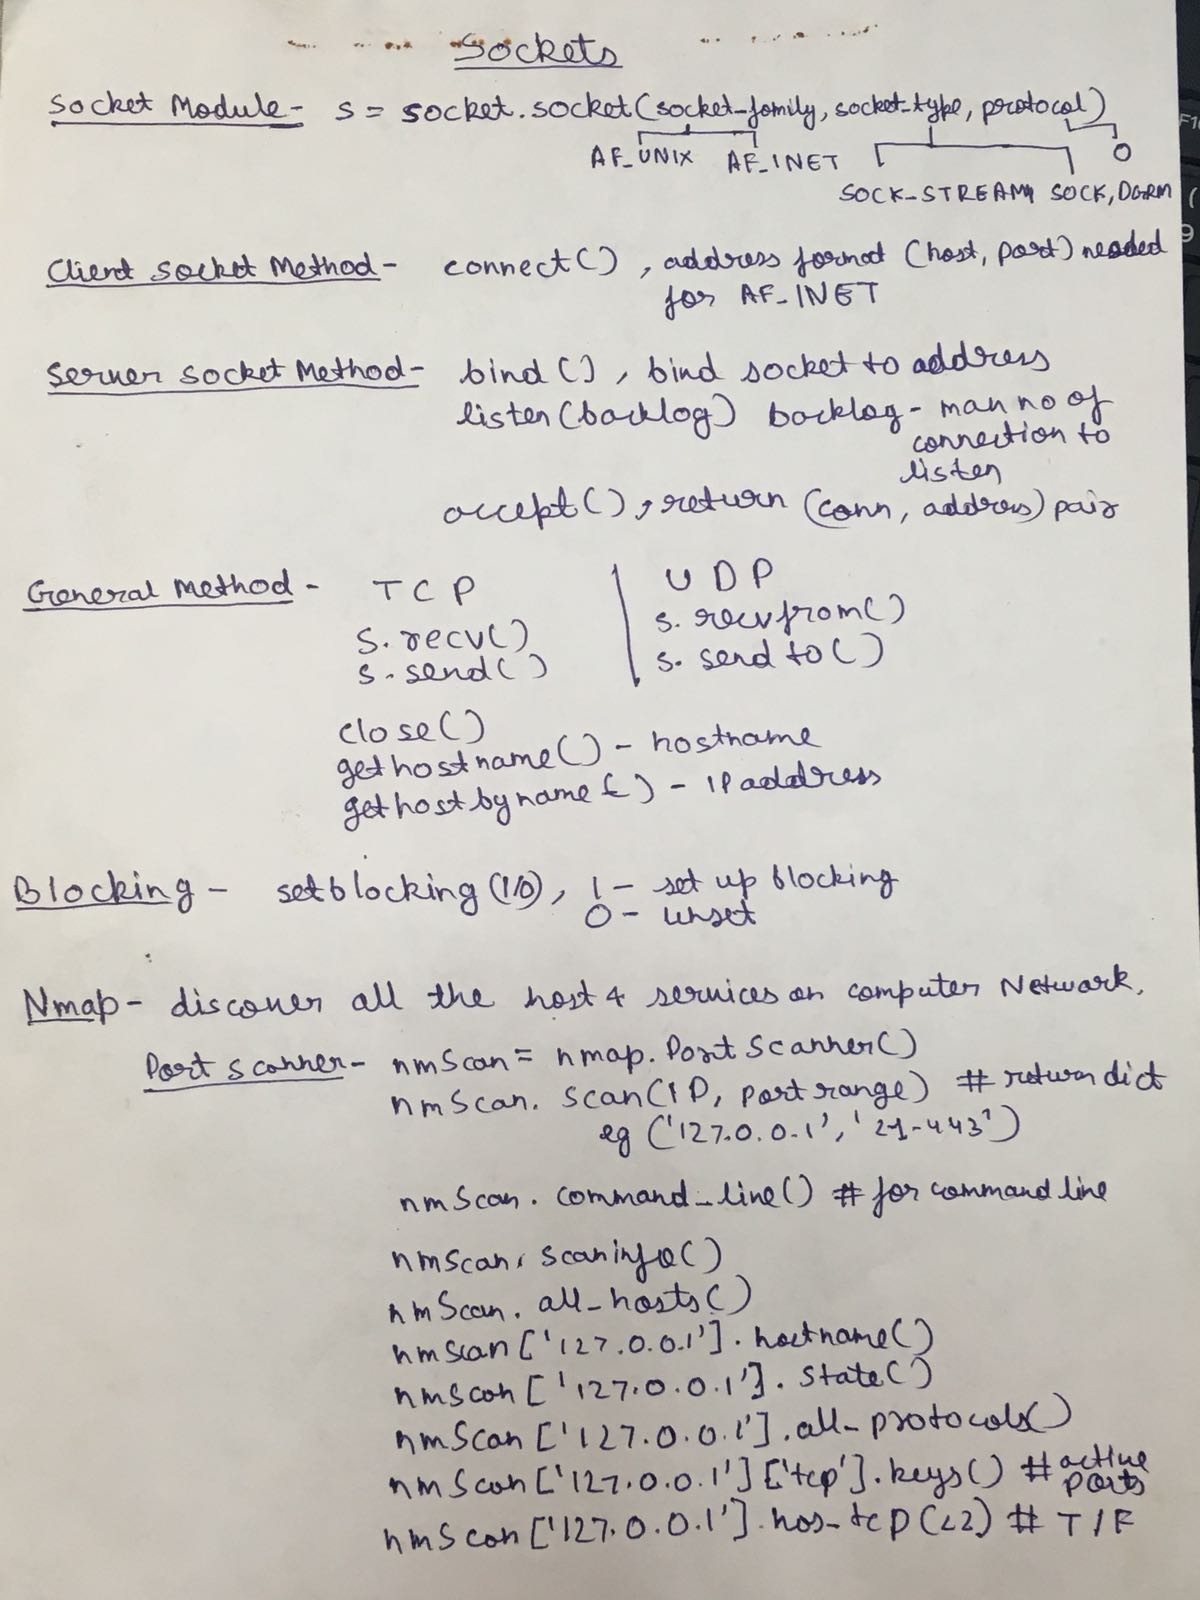 Sockets
Socket Module - s = socket.socket(socket-family, socket-type, protocol)
AF_UNIX AF_INET 0
SOCK-STREAM, SOCK, DGRM
Client socket Method - connect(), address format (host, port) needed
for AF_INET
Server socket Method - bind(), bind socket to address
listen(backlog) backlog - max no of
connection to
listen
accept(), return (conn, address) pair
General Method - TCP | UDP
s.recv() s.recvfrom()
s.send() s.sendto()
close()
gethostname() - hostname
gethostbyname() - IP address
Blocking - setblocking(1/0), 1 - set up blocking
0 - unset
Nmap - discover all the host & services on computer Network.
Port scanner - nmScan = nmap.PortScanner()
nmScan.scan(IP, portrange) # return dict
eg ('127.0.0.1', '21-443')
nmScan.command_line() # for command line
nmScan.scaninfo()
nmScan.all_hosts()
nmScan['127.0.0.1'].hostname()
nmScan['127.0.0.1'].state()
nmScan['127.0.0.1'].all_protocols()
nmScan['127.0.0.1']['tcp'].keys() # active
ports
nmScan['127.0.0.1'].has_tcp(22) # T/F